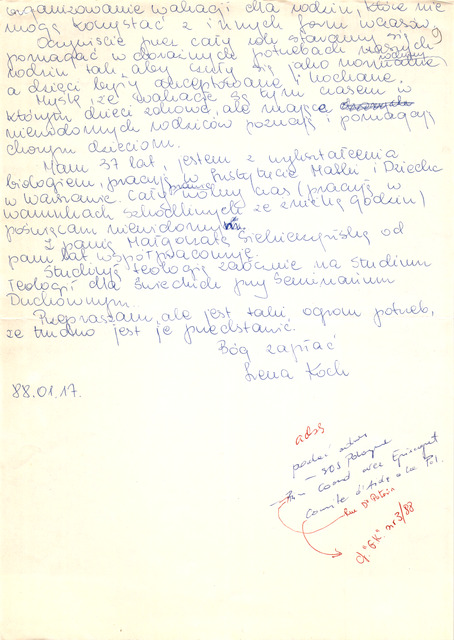 organizowanie wakacji dla rodzin, które nie
mogą korzystać z innych form wczasów.
Oczywiście przez cały rok staramy się
pomagać w doraźnych potrzebach naszych
rodzin tak, aby czuły się jako normalne
a dzieci były akceptowane i kochane.
Myślę, że wakacje są tym czasem w
którym dzieci zdrowe, ale mające
niewidomych rodziców poznają i pomagają
chorym dzieciom.
Mam 37 lat, jestem z wykształcenia
biologiem, pracuję w Instytucie Matki i Dziecka
w Warszawie. Cały wolny czas (pracuję w
warunkach szkodliwych ze zniżką godzin)
poświęcam niewidomym.
Z panią Małgorzatą od
paru lat współpracuję.
Studiuję teologię zaocznie na Studium
Teologii dla Świeckich przy Seminarium
Duchownym.
Przepraszam, ale jest taki ogrom potrzeb,
że trudno jest je przedstawić.
Bóg zapłać
Irena Koch
88.01.17.
adss
podać
- SOS Pologne
- Comité avec Episcopat
Comité d'Aide à la Pol.
"GK" nr 3/88